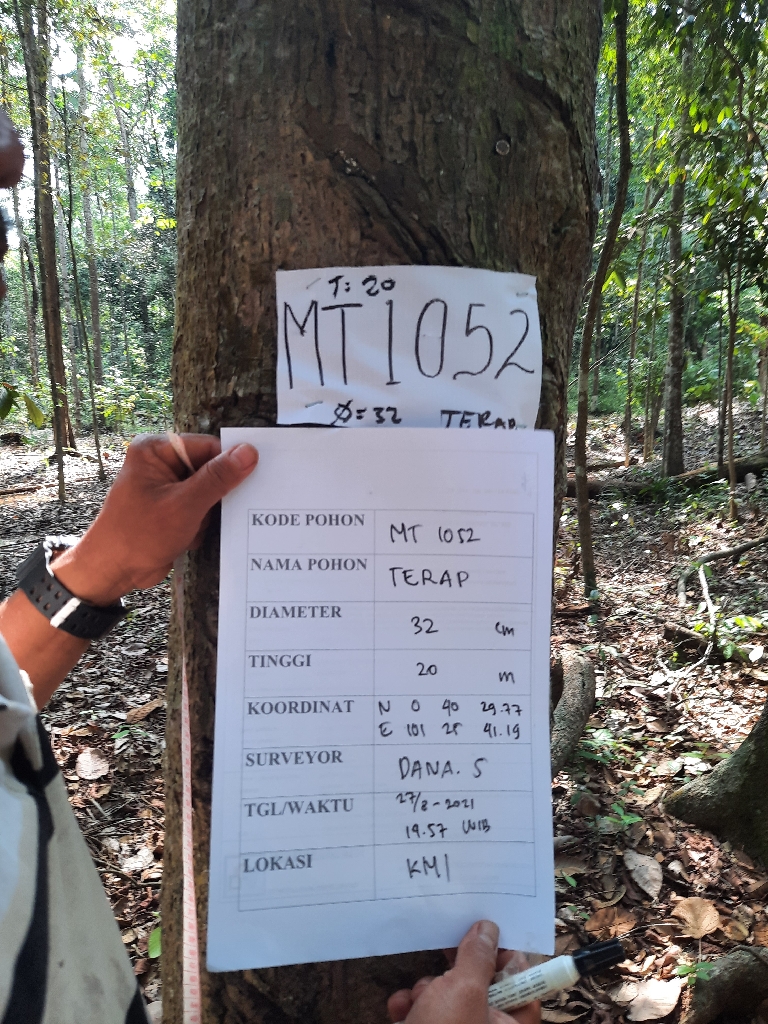 T: 20
MT1052
Ø=32 TERAP
KODE POHON MT 1052
NAMA POHON TERAP
DIAMETER 32 cm
TINGGI 20 m
KOORDINAT N 0 40 29.77
E 101 25 41.19
SURVEYOR DANA. S
TGL/WAKTU 27/8-2021
14.57 WIB
LOKASI KM1